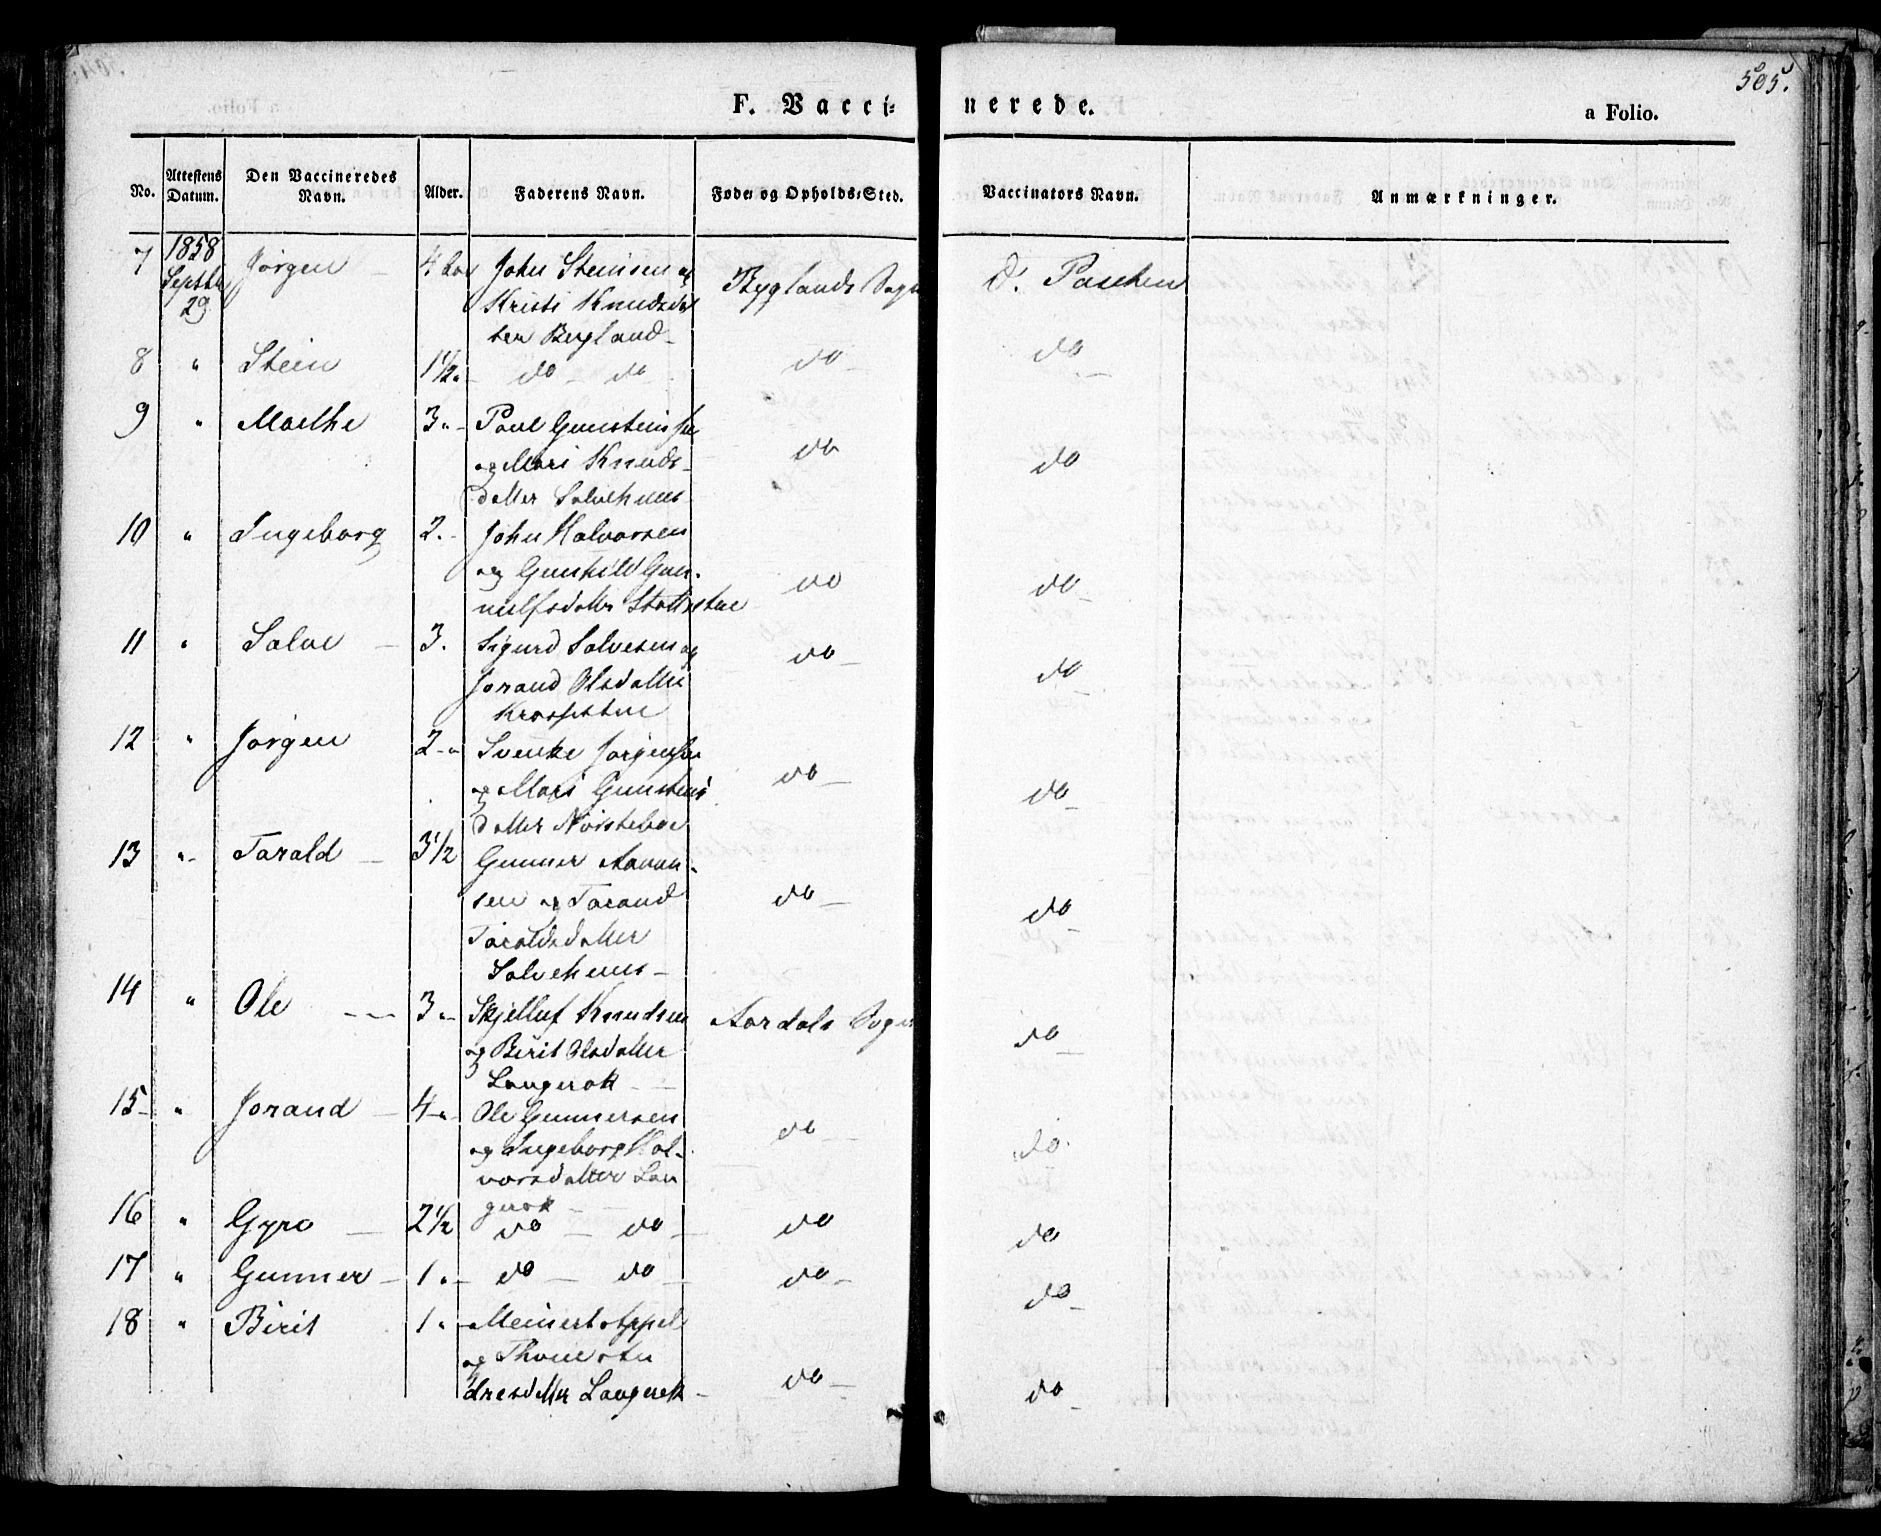 505.
F. Vacci= nerede. a Folio.
No. Attestens Datum. Den Vaccineredes Navn. Alder. Faderens Navn. Føde= og Opholds=Sted. Vaccinators Navn. Anmærkninger.
7 1858 Septbr 29 Jørgen 4 John Steinsen og Byglands Sogn D. Paschen
Kristi Knudsdat
ter Bergland
8 " Stein 1½ do do do do
9 " Marthe 3 Poul Gunsteinsen do do
og Mari Knuds-
datter
10 " Ingeborg 2 John Halvorsen do do
og Gunhild Gun-
nulfsdatter
11 " Salve 3 Sigurd Salvesen og do do
Jorand Olsdatter
12 " Jørgen 2 Svenke Jørgensen do do
og Mari Gunsteins
datter
13 " Tarald 3½ Gunner Aavun- do do
sen og Tarand
Taraldsdatter
14 " Ole 3 Skjelluf Knudsen Aardals Sogn do
og Birit Olsdatter
Langerak
15 " Jorand 4 Ole Gunnersen do do
og Ingeborg Hal-
vorsdatter Lan
gerak
16 " Gyro 2½ do do do do
17 " Gunner 1 do do do do
18 " Birit 1 Meinert Appel do do
og Thone An
dresdatter Langerak